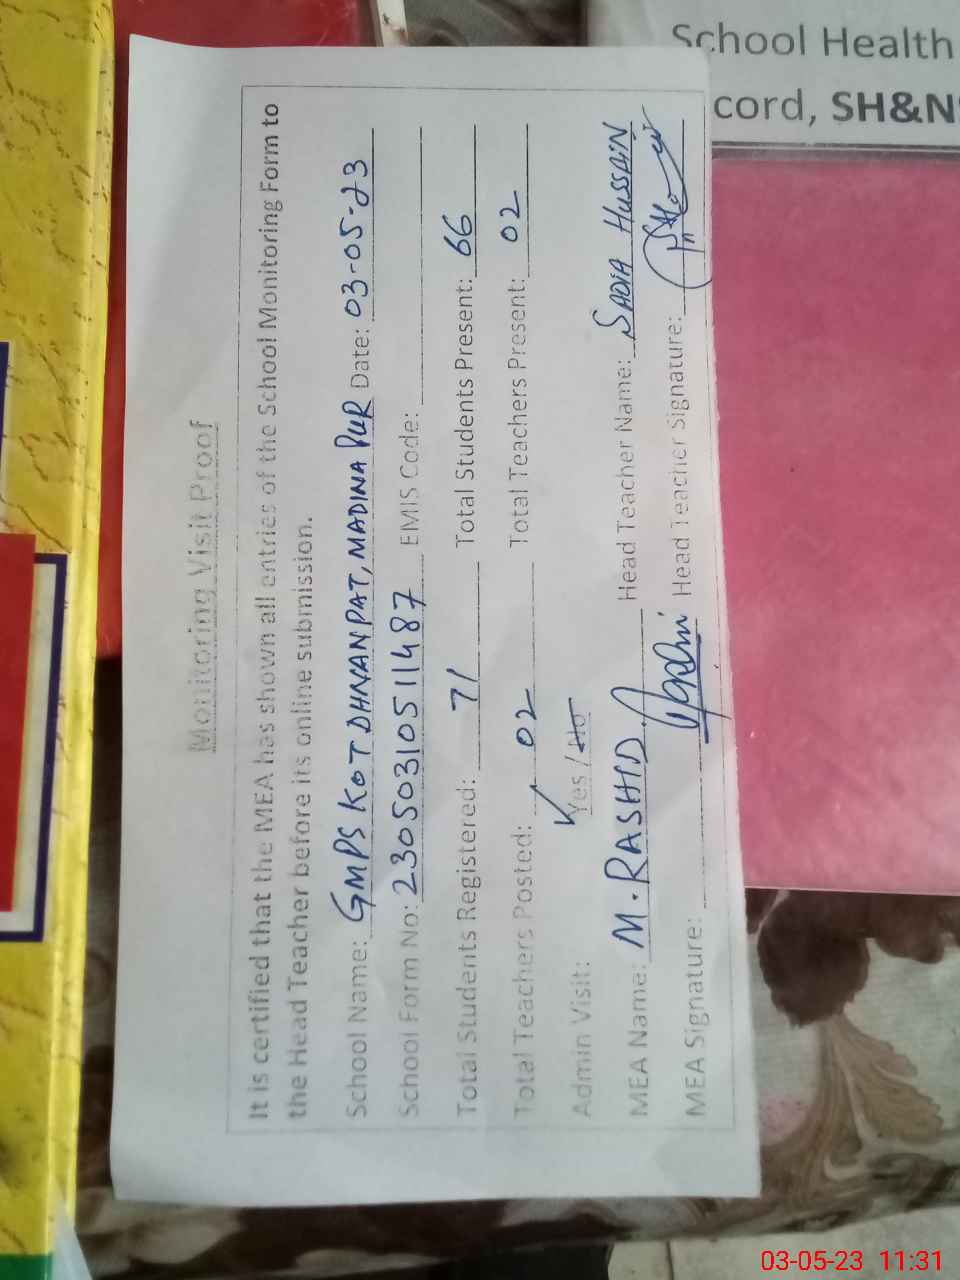 Monitoring Visit Proof
It is certified that the MEA has shown all entries of the School Monitoring Form to
the Head Teacher before its online submission.
School Name: GMPS KOT DHNANPAT, MADINA PUR Date: 03-05-23
School Form No: 23050310511487 EMIS Code:
Total Students Registered: 71 Total Students Present: 66
Total Teachers Posted: 02 Total Teachers Present: 02
Admin Visit: Yes / No
MEA Name: M. RASHID Head Teacher Name: SADIA HUSSAIN
MEA Signature: Head Teacher Signature:
School Health
cord, SH&NS
03-05-23 11:31